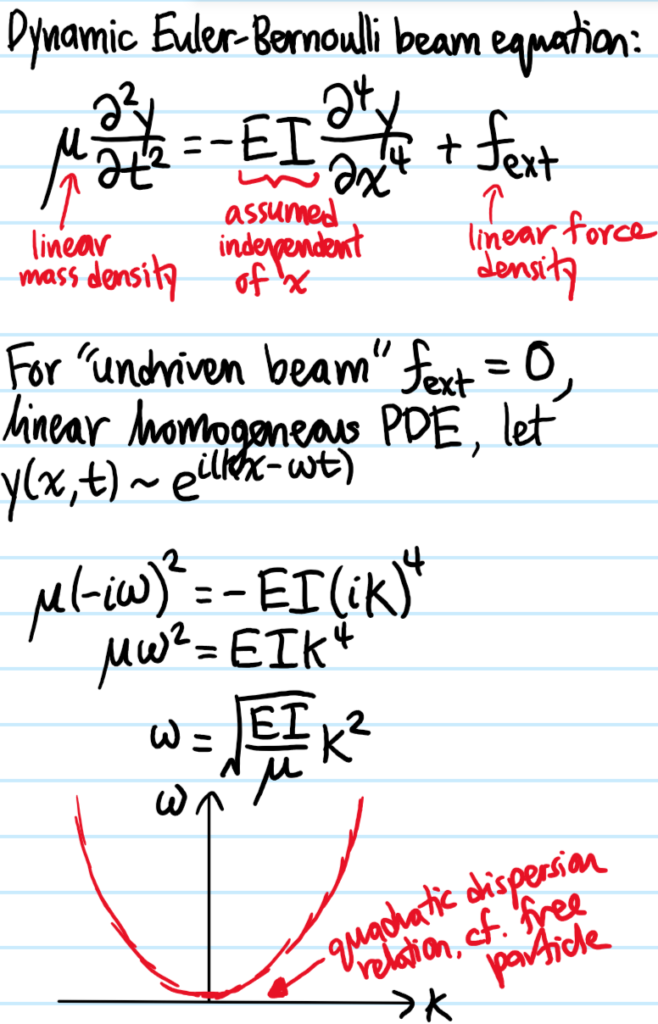 Dynamic Euler-Bernoulli beam equation:
μ ∂²y/∂t² = -EI ∂⁴y/∂x⁴ + f_ext
linear
mass density
assumed
independent
of x
linear force
density
For "undriven beam" f_ext = 0,
linear homogeneous PDE, let
y(x,t) ~ e^{i(kx-ωt)}
μ(-iω)² = -EI(ik)⁴
μω² = EIk⁴
ω = √(EI/μ) k²
ω
quadratic dispersion
relation, cf. free
particle
k